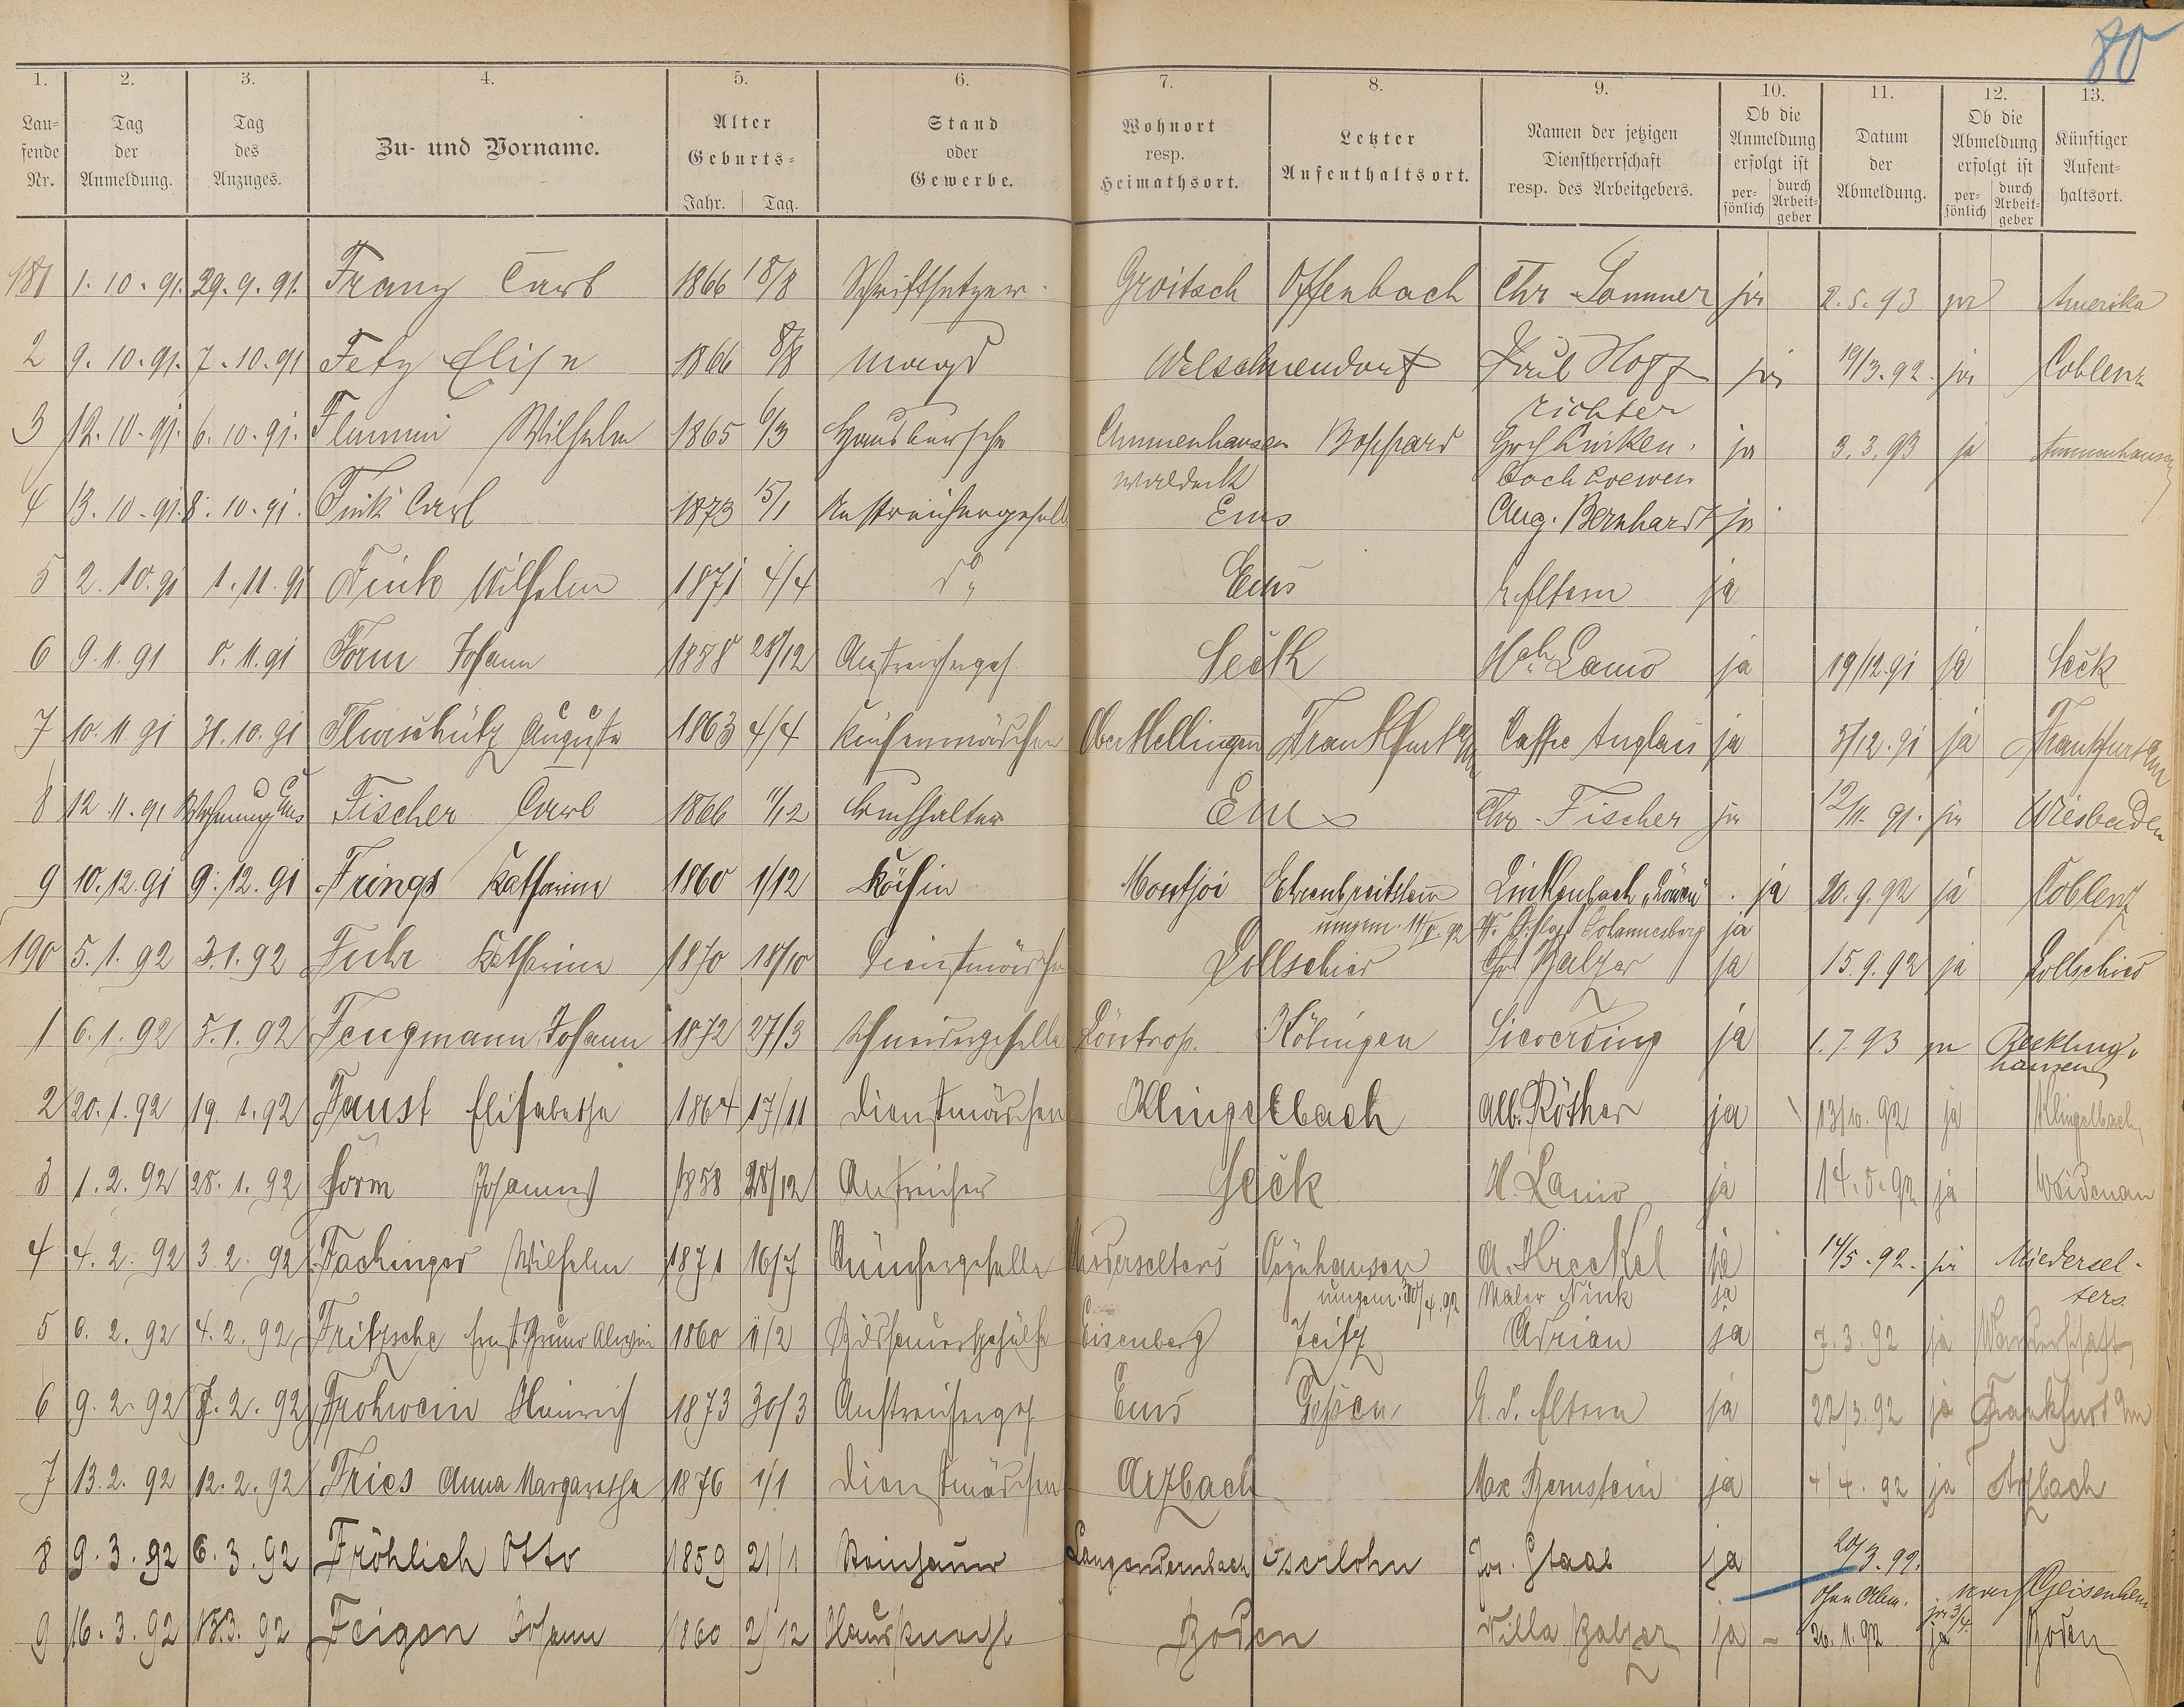 80
1. 2. 3. 4. 5. 6. 7. 8. 9. 10. 11. 12. 13.
Lau=
fende
Nr.
Tag
der
Anmeldung.
Tag
des
Anzuges.
Zu- und Vorname.
Alter
Geburts=
Jahr. Tag.
Stand
oder
Gewerbe.
Wohnort
resp.
Heimathsort.
Letzter
Aufenthaltsort.
Namen der jetzigen
Dienstherrschaft
resp. des Arbeitgebers.
Ob die
Anmeldung
erfolgt ist
per=
sönlich
durch
Arbeit=
geber
Datum
der
Abmeldung.
Ob die
Abmeldung
erfolgt ist
per=
sönlich
durch
Arbeit=
geber
Künftiger
Aufent=
haltsort.
181 1. 10. 91. 29. 9. 91. Franz Carl 1866 18/8 Schriftsetzer. Groitsch Offenbach Chr Sommer ja 2. 5. 93 ja Amerika
2 9. 10. 91. 7. 10. 91 Fetz Elise 1866 8/8 Magd Welschneudorf Paul Hoff ja 19/3. 92. ja Coblenz
richter
3 12. 10. 91. 6. 10. 91. Flamm Wilhelm 1865 6/3 Hausbursche Ammenhausen Boppard Linken. ja 3. 3. 93 ja Ammenhausen
Waldeck bach Loewen
4 13. 10. 91. 8. 10. 91. Fink Carl 1873 15/1 Anstreichergeselle Ems Aug. Bernhardt ja
5 2. 10. 91 1. 11. 91 Fink Wilhelm 1871 4/4 do Ems Eltern ja
6 9. 11. 91 8. 11. 91 Form Johann 1858 28/12 Anstreicherges. Seck Hch. Lanio ja 19/12 91 ja Seck
7 10. 11 91 31. 10. 91 Flurschütz Auguste 1863 4/4 Küchenmädchen Oberhellingen Frankfurt a/m Caffee Anglais ja 5/12. 91 ja Frankfurt a/m
8 12. 11. 91 Wohnung Ems Fischer Carl 1866 11/12 Buchhalter Ems Chr. Fischer ja 12/11. 91. ja Wiesbaden
9 10. 12. 91 9. 12. 91 Frings Katharina 1860 1/12 Köchin Montjoi Ehrenbreitstein Linkenbach „Löwen“ ja 20. 9. 92 ja Coblenz
Johannesberg ja
190 5. 1. 92 3. 1. 92 Fuhr Katharina 1870 18/10 Dienstmädchen Zollschied Chr Balzer ja 15. 9. 92 ja Zollschied
1 6. 1. 92 5. 1. 92 Feugmann Johann 1872 27/3 Schneidergeselle Löntrop. Köbingen Sieverding ja 1. 7. 93 ja Reckling-
hausen
2 20. 1. 92 19. 1. 92 Faust Elisabetha 1864 17/11 Dienstmädchen Klingelbach Alb. Röther ja 13/10. 92 ja Klingelbach
3 1. 2. 92 28. 1. 92 Form Johannes 1858 28/12 Anstreicher Seck H. Lanio ja 14. 5. 92 ja Weidenau
4 4. 2. 92 3. 2. 92 Fachinger Wilhelm 1871 16/7 Tünchergeselle Niederselters Oeynhausen A. Kreckel ja 14/5. 92. ja Niedersel-
30/4. 92 Maler Nink ja ters
5 6. 2. 92 4. 2. 92 Fritzsche Ernst Bruno Alwin 1860 11/2 Bildhauergehülfe Eisenberg Zeitz Adrian ja 7. 3. 92 ja Wanderschaft
6 9. 2. 92 7. 2. 92 Frohwein Heinrich 1873 30/3 Anstreicherges. Ems Essen b. d. Eltern ja 22/3. 92 ja Frankfurt a/m
7 13. 2. 92 12. 2. 92 Fries Anna Margaretha 1876 1/1 Dienstmädchen Arzbach Max Bernstein ja 4/4. 92 ja Arzbach
8 9. 3. 92 6. 3. 92 Fröhlich Otto 1859 21/1 Steinhauer Langendernbach Iserlohn Jos. Staab ja 20/3. 99.
ohne Abm. nach Geisenheim
9 16. 3. 92 13. 3. 92 Feigen Johann 1860 2/12 Hausknecht Boden Villa Balzer ja 26. 11. 92 ja Boden